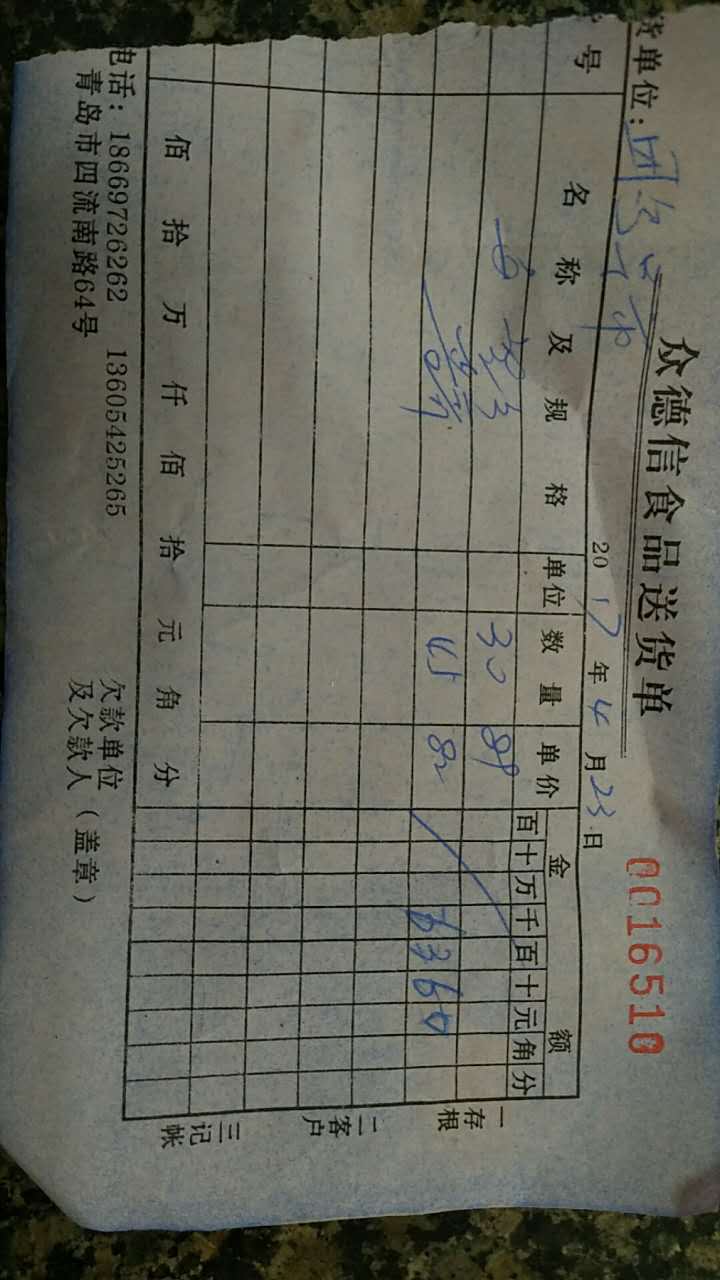 众德信食品送货单
0016510
货单位:
2017年4月23日
号 名称及规格 单位 数量 单价 金额
百 十 万 千 百 十 元 角 分
30 89
45 82 6360
佰 拾 万 仟 佰 拾 元 角 分
一存根
二客户
三记帐
电话: 18669726262 13605425265
青岛市四流南路64号
欠款单位
及欠款人(盖章)